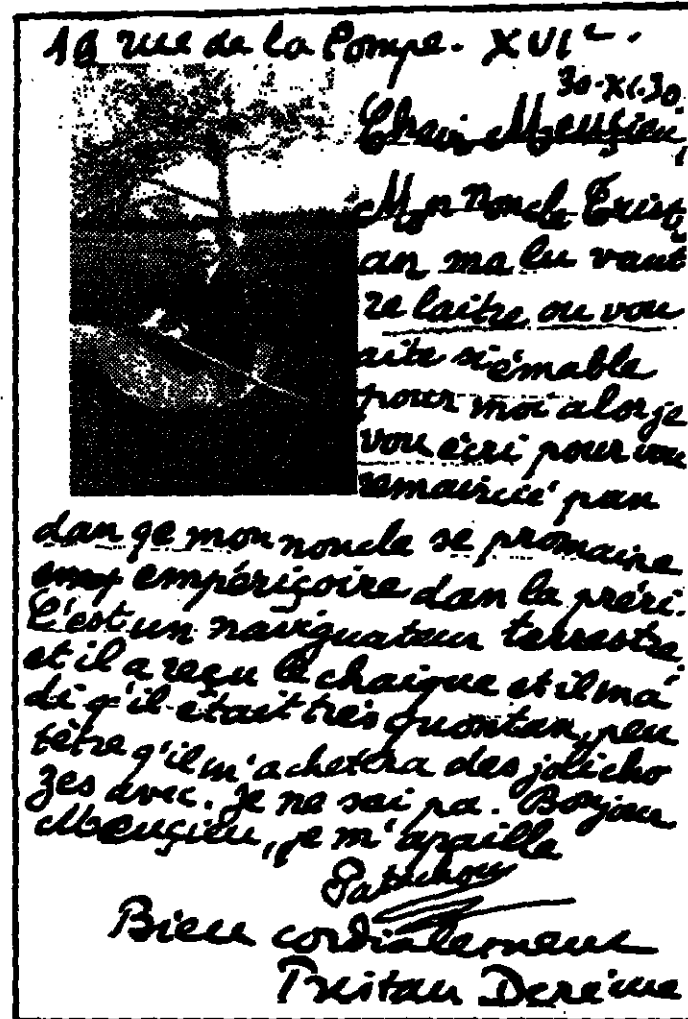 19 rue de la Pompe. XVIe.
30.XI.30
Chair Meusieu,
Mon noncle Trist
an ma lu vaut
re laitre ou vou
aite si émable
pour moi alor je
vou écri pour vou
remairciè pan
dan qe mon noncle se promaine
empériçoire dan la préri.
C'est un naviguateur terrestre
et il a reçu le chaique et il m'a
di q'il était très quontan, peu
têtre q'il m'achetera des joli cho
zes avec. Je ne sai pa. Bonjour
Meuçieu, je m'apaille
Patachou
Bien cordialement
Tristan Derème